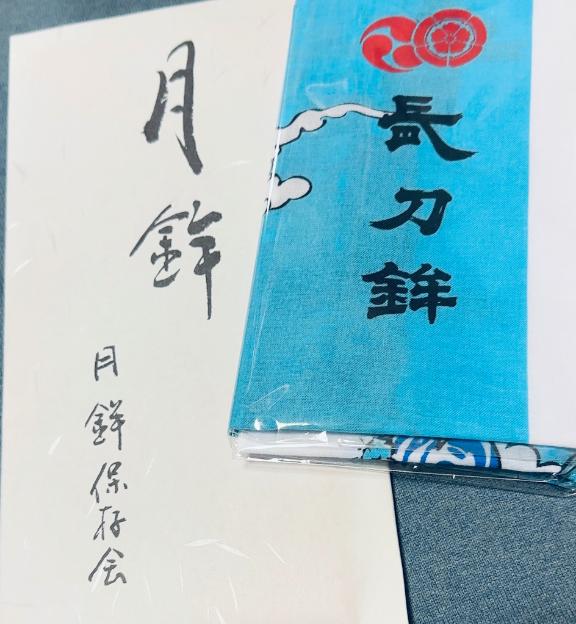 長刀鉾
月鉾
月鉾保存会